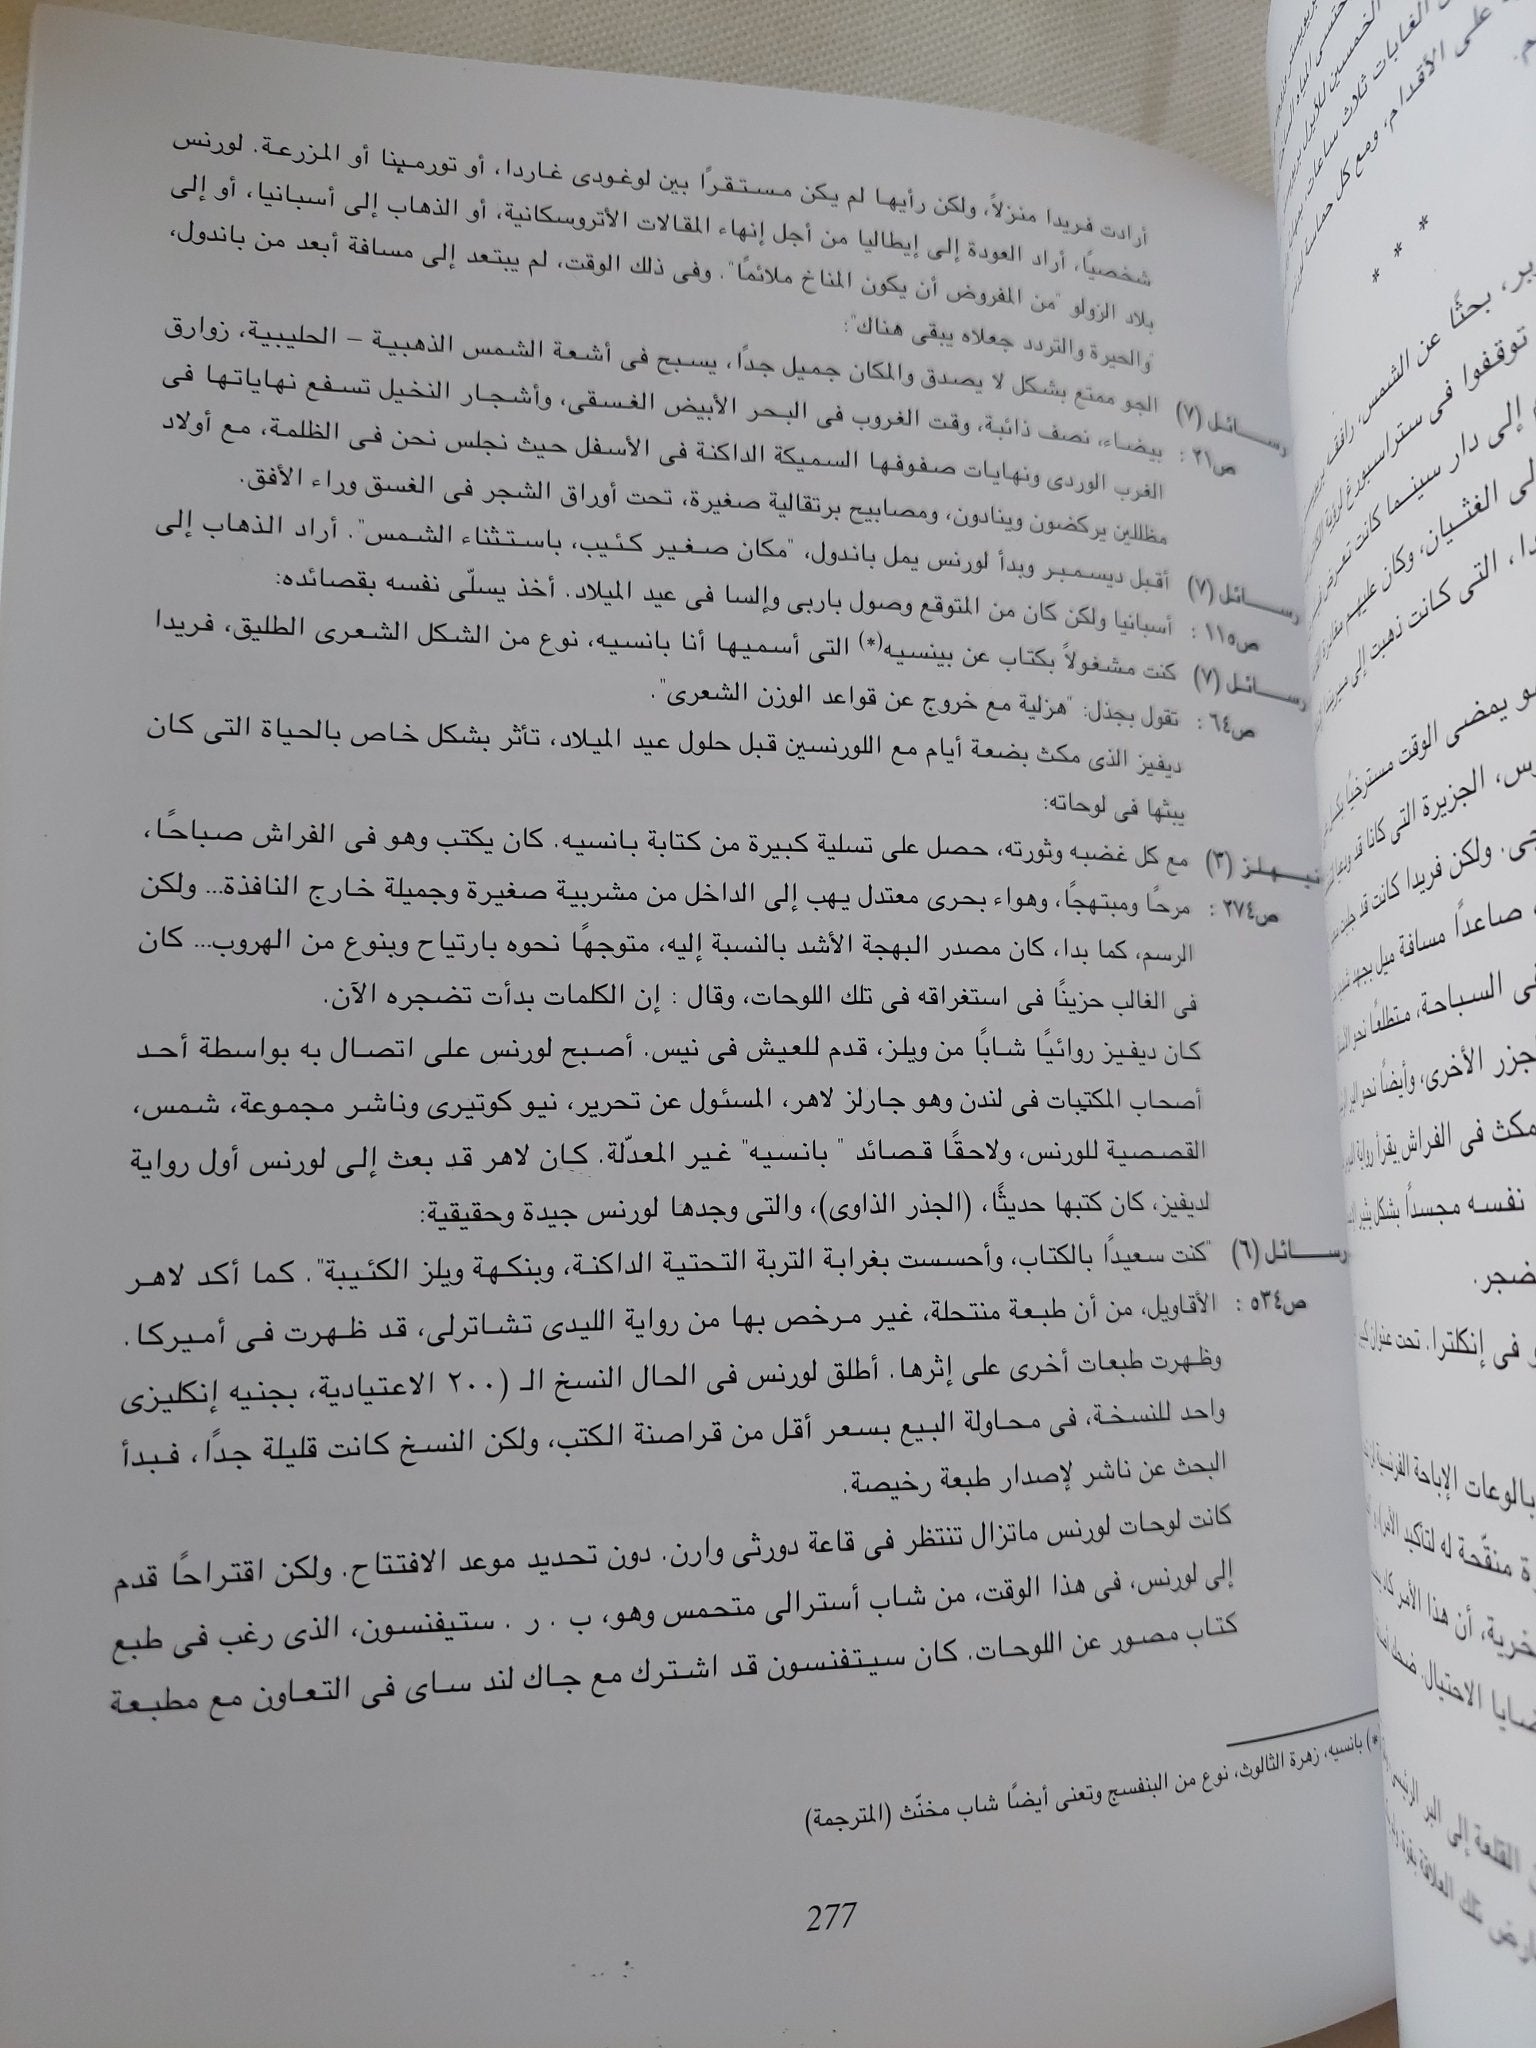 أرادت فريدا منزلاً، ولكن رأيها لم يكن مستقرًا بين لوغودى غاردا، أو تورمينا أو المزرعة. لورنس
شخصيًا، أراد العودة إلى إيطاليا من أجل إنهاء المقالات الأتروسكانية، أو الذهاب إلى أسبانيا، أو إلى
بلاد الزولو "من المفروض أن يكون المناخ ملائمًا". وفى ذلك الوقت، لم يبتعد إلى مسافة أبعد من باندول،
"والحيرة والتردد جعلاه يبقى هناك":
رسائل (٧) الجو ممتع بشكل لا يصدق والمكان جميل جدًا، يسبح فى أشعة الشمس الذهبية – الحليبية، زوارق
ص٢١ : بيضاء، نصف ذائبة، وقت الغروب فى البحر الأبيض الغسقى، وأشجار النخيل تسفع نهاياتها فى
الغرب الوردى ونهايات صفوفها السميكة الداكنة فى الأسفل حيث نجلس نحن فى الظلمة، مع أولاد
مظللين يركضون وينادون، ومصابيح برتقالية صغيرة، تحت أوراق الشجر فى الغسق وراء الأفق.
رسائل (٧) أقبل ديسمبر وبدأ لورنس يمل باندول، "مكان صغير كئيب، باستثناء الشمس". أراد الذهاب إلى
ص١١٥ : أسبانيا ولكن كان من المتوقع وصول باربى وإلسا فى عيد الميلاد. أخذ يسلّى نفسه بقصائده:
رسائل (٧) كنت مشغولاً بكتاب عن بينسيه(*) التى أسميها أنا بانسيه، نوع من الشكل الشعرى الطليق، فريدا
ص٦٤ : تقول بجذل: "هزلية مع خروج عن قواعد الوزن الشعرى".
ديفيز الذى مكث بضعة أيام مع اللورنسين قبل حلول عيد الميلاد، تأثر بشكل خاص بالحياة التى كان
يبثها فى لوحاته:
نيهلز (٣) مع كل غضبه وثورته، حصل على تسلية كبيرة من كتابة بانسيه. كان يكتب وهو فى الفراش صباحًا،
ص٢٧٤ : مرحًا ومبتهجًا، وهواء بحرى معتدل يهب إلى الداخل من مشربية صغيرة وجميلة خارج النافذة... ولكن
الرسم، كما بدا، كان مصدر البهجة الأشد بالنسبة إليه، متوجهًا نحوه بارتياح وبنوع من الهروب... كان
فى الغالب حزينًا فى استغراقه فى تلك اللوحات، وقال : إن الكلمات بدأت تضجره الآن.
كان ديفيز روائيًا شابًا من ويلز، قدم للعيش فى نيس. أصبح لورنس على اتصال به بواسطة أحد
أصحاب المكتبات فى لندن وهو جارلز لاهر، المسئول عن تحرير، نيو كوتيرى وناشر مجموعة، شمس،
القصصية للورنس، ولاحقًا قصائد " بانسيه" غير المعدّلة. كان لاهر قد بعث إلى لورنس أول رواية
لديفيز، كان كتبها حديثًا، (الجذر الذاوى)، والتى وجدها لورنس جيدة وحقيقية:
رسائل (٦) "كنت سعيدًا بالكتاب، وأحسست بغرابة التربة التحتية الداكنة، وبنكهة ويلز الكئيبة". كما أكد لاهر
ص٥٣٤ : الأقاويل، من أن طبعة منتحلة، غير مرخص بها من رواية الليدى تشاترلى، قد ظهرت فى أميركا.
وظهرت طبعات أخرى على إثرها. أطلق لورنس فى الحال النسخ الـ (٢٠٠ الاعتيادية، بجنيه إنكليزى
واحد للنسخة، فى محاولة البيع بسعر أقل من قراصنة الكتب، ولكن النسخ كانت قليلة جدًا، فبدأ
البحث عن ناشر لإصدار طبعة رخيصة.
كانت لوحات لورنس ماتزال تنتظر فى قاعة دورثى وارن. دون تحديد موعد الافتتاح. ولكن اقتراحًا قدم
إلى لورنس، فى هذا الوقت، من شاب أسترالى متحمس وهو، ب . ر . ستيفنسون، الذى رغب فى طبع
كتاب مصور عن اللوحات. كان سيتفنسون قد اشترك مع جاك لند ساى فى التعاون مع مطبعة
(*) بانسيه، زهرة الثالوث، نوع من البنفسج وتعنى أيضًا شاب مخنّث (المترجمة)
277
على الأقدام، ومع كل
* * *
بحثًا عن الشمس، رافقه
توقفوا فى ستراسبورغ لرؤية
إلى دار سينما كانت تعرض
الغثيان، وكان عليهم
التى كانت ذهبت إلى
يمضى الوقت مسترخيًا
الجزيرة التى كانا قد
ولكن فريدا كانت قد
صاعدًا مسافة ميل بجهد
السباحة، متطلعًا نحو
الأخرى، وأيضًا نحو
مكث فى الفراش يقرأ رواية
نفسه مجسدًا بشكل يثير
فى إنكلترا. تحت عنوان
الإباحة الفرنسية
منقّحة له لتأكيد الأمر
أن هذا الأمر كان
الاحتيال. ضحك
القلعة إلى البر الرئيسى
تلك العلاقة بقوة